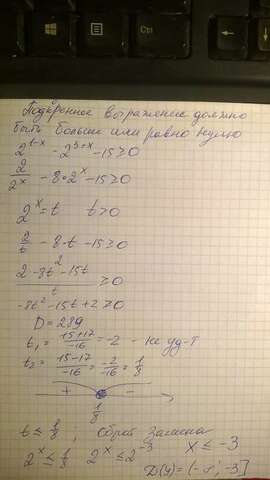 Подкоренное выражение должно
быть больше или равно нулю
2^{1-x} - 2^{3+x} - 15 ≥ 0
2/2^x - 8·2^x - 15 ≥ 0
2^x = t t > 0
2/t - 8·t - 15 ≥ 0
(2 - 8t^2 - 15t)/t ≥ 0
-8t^2 - 15t + 2 ≥ 0
D = 289
t_1 = (15+17)/-16 = -2 - не уд-т
t_2 = (15-17)/-16 = -2/-16 = 1/8
+ -
1/8
t ≤ 1/8 ; Обрат замена
2^x ≤ 1/8 2^x ≤ 2^{-3} x ≤ -3
D(y) = (-∞; -3]